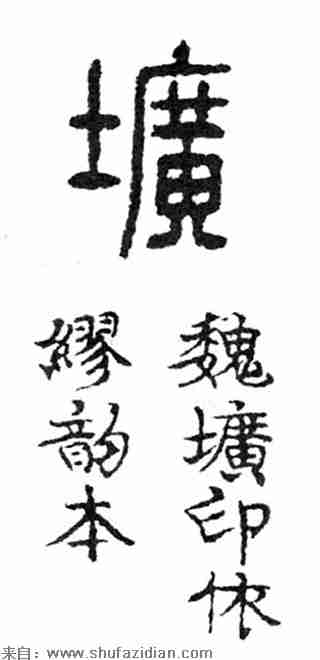 壙
魏壙印依
繆韵本
来自：www.shufazidian.com